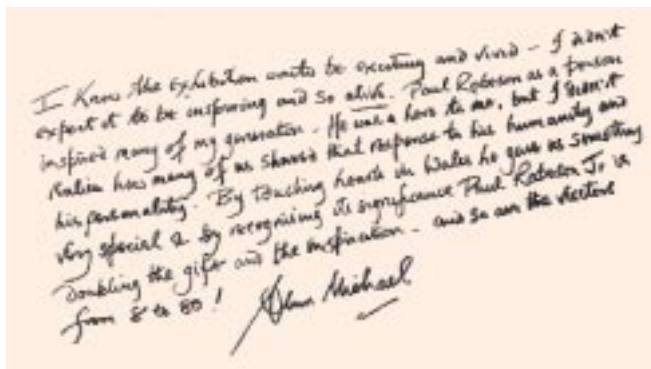 I knew the exhibition would be exciting and vivid - I didn't
expect it to be inspiring and so alive. Paul Robeson as a person
inspired many of my generation. He was a hero to me, but I didn't
realise how many of us shared that response to his humanity and
his personality. By touching hearts in Wales he gave us something
very special & by recognising its significance Paul Robeson Jr. is
doubling the gift and the inspiration - and so are the visitors
from 8 to 80!
Alun Michael